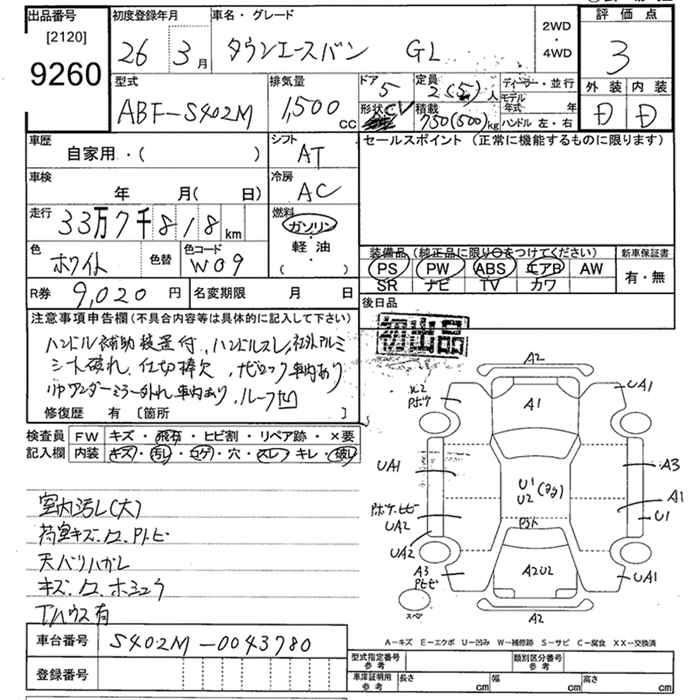 出品番号 初度登録年月 車名・グレード 2WD・4WD 評価点
[2120]
9260 26 3月 タウンエースバン GL 3
型式 排気量 ドア 定員 ディーラー・並行 外装 内装
ABF-S402M 1,500cc 5 2(5)人 モデル年式 年 D D
形状 CV 積載 750(500)kg ハンドル 左・右
車歴 シフト セールスポイント (正常に機能するものに限ります)
自家用・( ) AT
車検 冷房
年 月(日) AC
走行 燃料
33万7千818km ガソリン・軽油・( )
色 色替 色コード 装備品 (純正品に限り○をつけてください) 新車保証書
ホワイト W09 PS PW ABS エアB AW 有・無
SR ナビ TV カワ
R券 9,020円 名変期限 月 日 後日品
注意事項申告欄(不具合内容等は具体的に記入して下さい) 初出品
ハンドル補助装置付、ハンドルスレ、社外アルミ
シート破れ、仕切棒欠、ナビロック車内あり
リヤアンダーミラー外れ車内あり、ルーフ凹
修復歴 有 [箇所 ]
検査員 FW キズ・飛石・ヒビ割・リペア跡・×要
記入欄 内装 キズ・汚レ・コゲ・穴・スレ・キレ・破レ
A2
UA1
A1
UA1
A3
U1
U2
A1
U1
UA2
UA2
A3
A2U2
UA1
A2
スペア
室内汚レ(大)
荷室キズ.
天バリハガレ
キズ.
有
車台番号 S402M-0043780
A-キズ E-エクボ U-凹み W-補修跡 S-サビ C-腐食 XX-交換済
登録番号 型式指定番号 参考 類別区分番号 参考
車庫証明用 参考 長さ cm 幅 cm 高さ cm